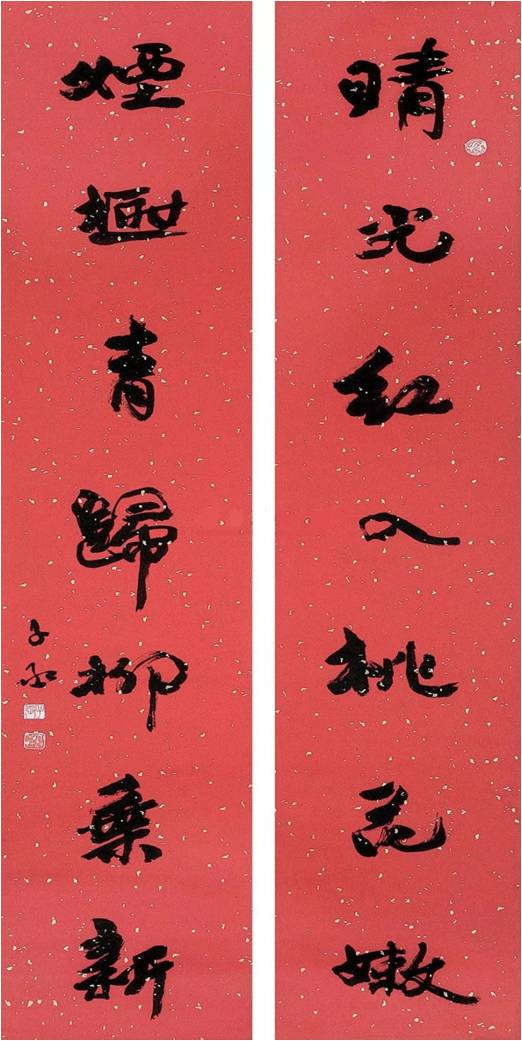 晴光紅入桃花嫩
煙樹青歸柳葉新